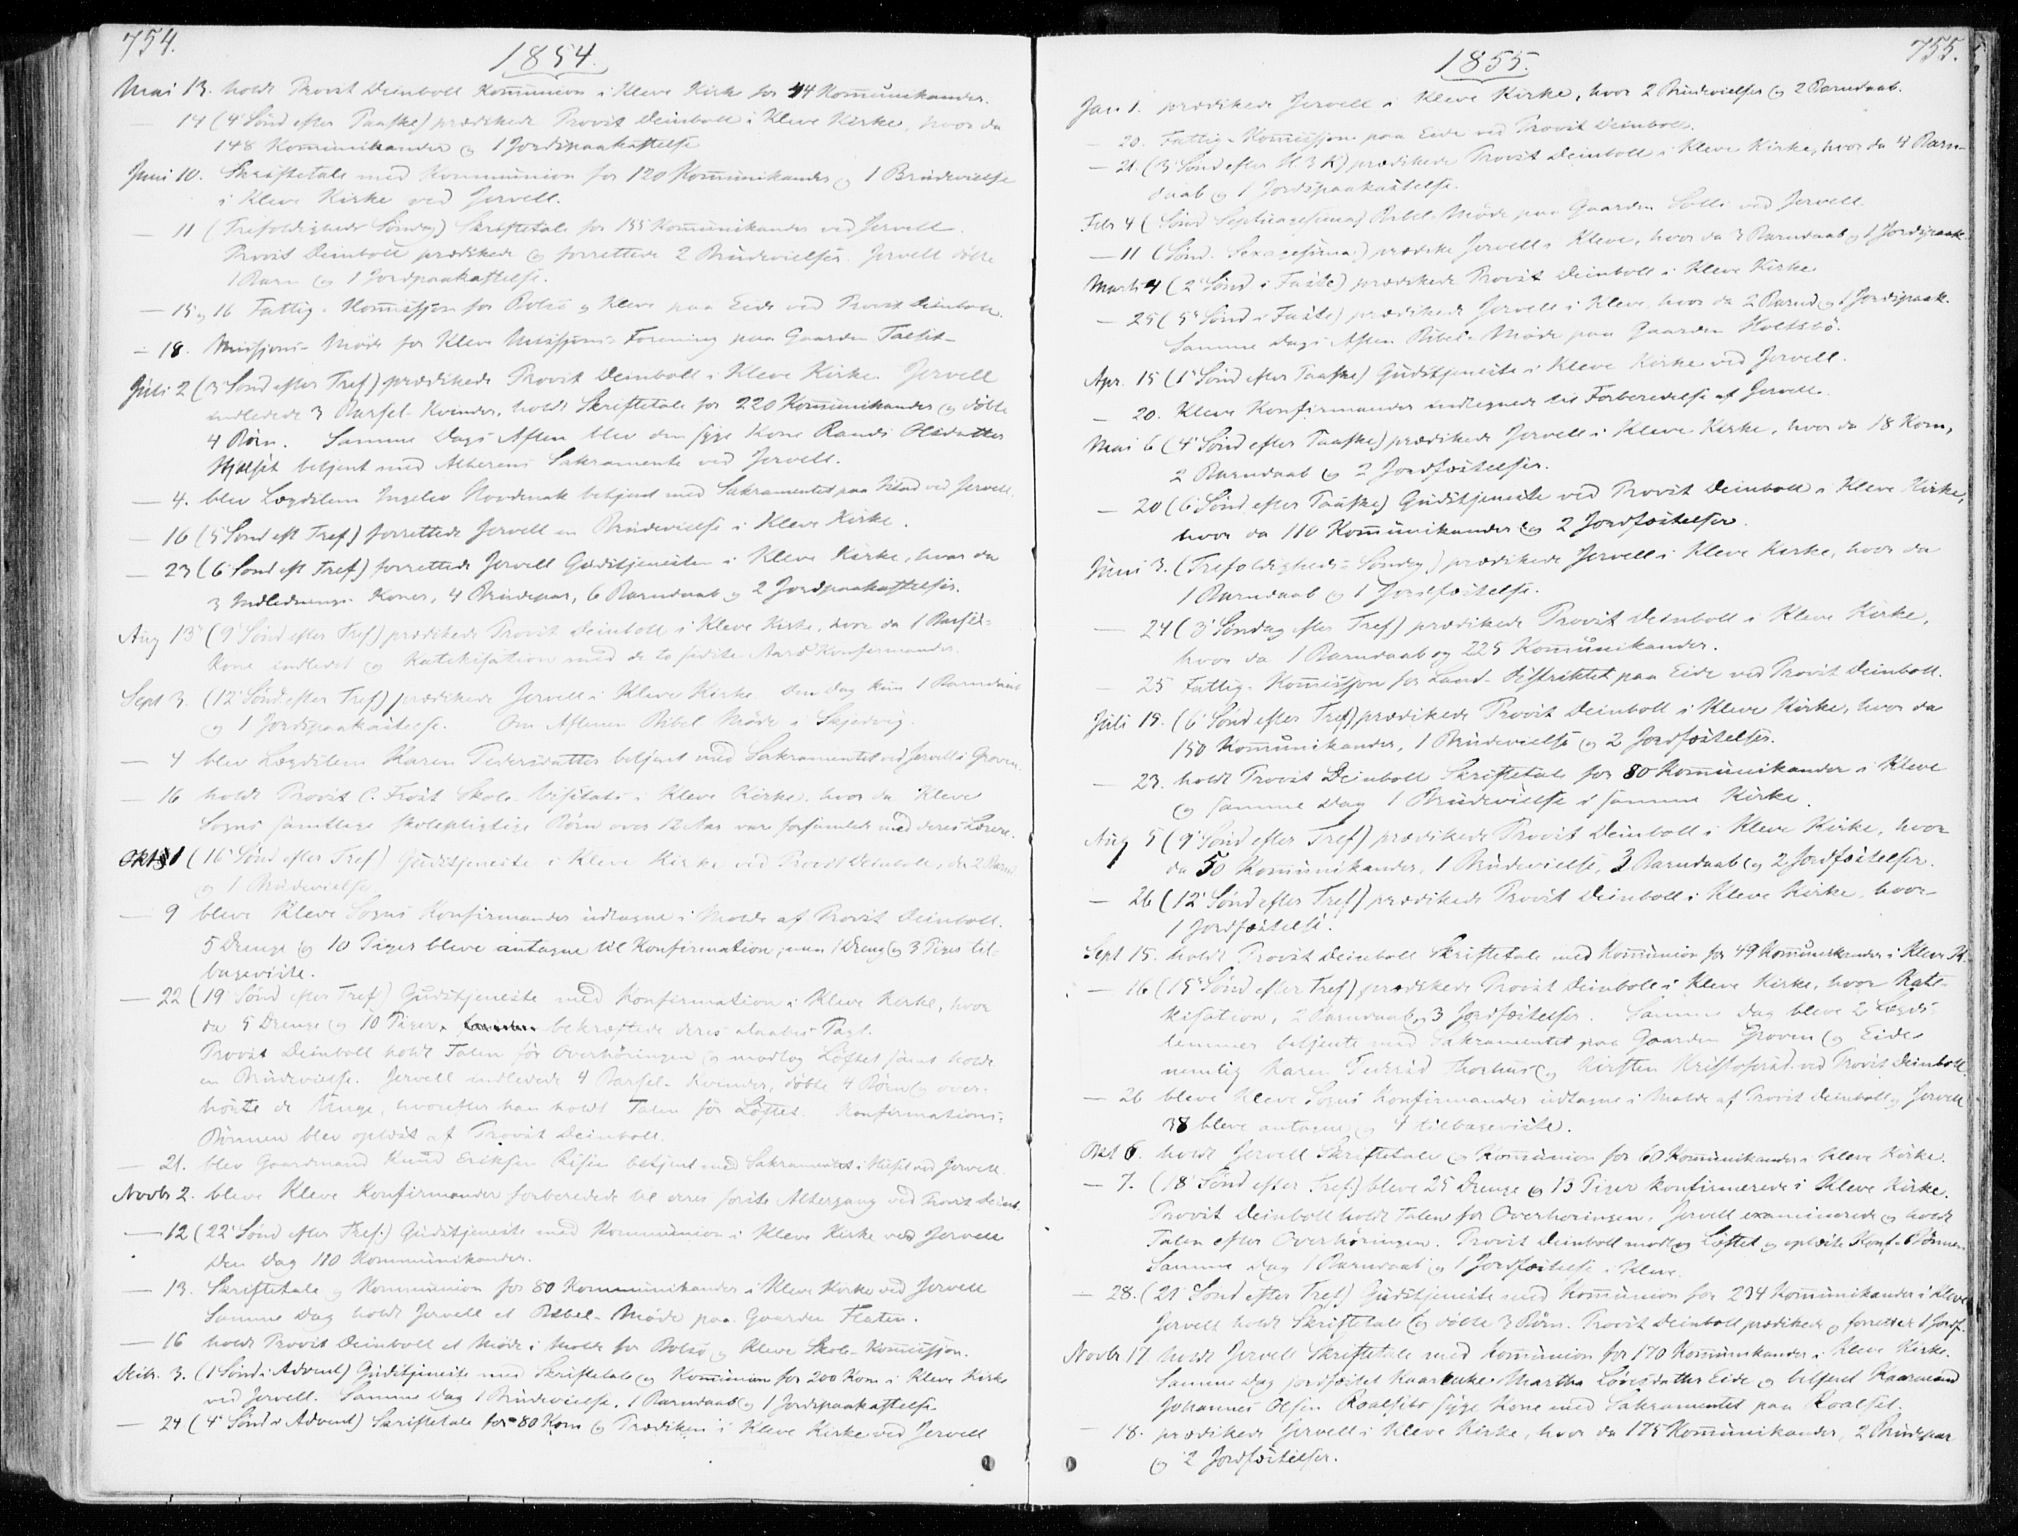 754.
1854.
Mai 13. holdt Provst Deinboll Kommunion i Kleve Kirke for 44 Kommunikander.
— 14 (4' Sönd efter Paaske) prædikede Provst Deinboll i Kleve Kirke, hvor da
148 Kommunikander og 1 Jordspaakastelse
Juni 10. Skriftetale med Kommunion for 120 Kommunikander og 1 Brudevielse
i Kleve Kirke ved Jervell.
— 11 (Trefoldigheds Söndag) Skriftetale for 155 Kommunikander ved Jervell.
Provst Deinboll prædikede og forrettede 2 Brudevielser. Jervell döbte
1 Barn og 1 Jordpaakastelse.
— 15 og 16 Fattig-Kommission for Bolsö og Kleve paa Eide ved Provst Deinboll.
— 18. Missions-Möde for Kleve Missions-Forening paa Gaarden
Juli 2 (3' Sönd efter Tref) prædikede Provst Deinboll i Kleve Kirke. Jervell
indledede 3 Barsel-Kvinder, holdt Skriftetale for 220 Kommunikander og döbte
4 Börn. Samme Dags Aften blev den syge Kone Randi Olsdatter
Hjelset betjent med Altarens Sakramente ved Jervell.
— 4. blev Lægdslem Ingelev betjent med Sakramentet paa ved Jervell.
— 16 (5 Sönd eft Tref) forrettede Jervell en Brudevielse i Kleve Kirke.
— 23 (6' Sönd eft Tref) forrettede Jervell Gudstjenesten i Kleve Kirke, hvor da
3 Indlednings-Koner, 4 Brudepar, 6 Barndaab og 2 Jordpaakastelser.
Aug 13 (9' Sönd efter Tref) prædikede Provst Deinboll i Kleve Kirke, hvor da 1 Barsel-
Kone indledet og Katekisation med de to sidste Aars Konfirmander.
Sept 3. (12' Sönd efter Tref) prædikede Jervell i Kleve Kirke. Den Dag kun 1 Barndaab
og 1 Jordspaakastelse. Om Aftenen Bibel Möde i Skjevig.
— 4 blev Lægdslem Karen Pedersdatter betjent med Sakramentet ved Jervell i Groven.
— 16 holdt Provst C. Frost Skole-Visitats i Kleve Kirke, hvor da Kleve
Sogns samtlige skolepligtige Börn over 12 Aar vare forsamlede med deres Lærere.
Oktb 1 (16' Sönd efter Tref) Gudstjeneste i Kleve Kirke ved Provst Deinboll, da 2 Barnd
og 1 Brudevielse
— 9 bleve Kleve Sogns Konfirmander udtagne i Molde af Provst Deinboll.
5 Drenge og 10 Piger bleve antagne til Konfirmation; men 1 Dreng og 3 Piger til-
bageviste.
— 22 (19' Sönd efter Tref) Gudstjeneste med Konfirmation i Kleve Kirke, hvor
da 5 Drenge og 10 Piger bekræftede deres Daabes-Pagt.
Provst Deinboll holdt Talen för Overhöringen og modtog Löftet samt holdt
en Brudevielse. Jervell indledede 4 Barsel-Kvinder, döbte 4 Börn og over-
hörte de Unge, hvorefter han holdt Talen för Löftet. Konfirmations-
Bönnen blev oplæst af Provst Deinboll.
— 21. blev Gaardmand Knud Eriksen betjent med Sakramentet i ved Jervell.
Novbr 2. bleve Kleve Konfirmander forberedede til deres förste Altergang ved Provst Deinb.
— 12 (22' Sönd efter Tref.) Gudstjeneste med Kommunion i Kleve Kirke ved Jervell
Den Dag 110 Kommunikander.
— 13. Skriftetale og Kommunion for 80 Kommunikander i Kleve Kirke ved Jervell
Samme Dag holdt Jervell et Bibel-Möde paa Gaarden Flaten.
— 16 holdt Provst Deinboll et Möde i Molde for Bolsö og Kleve Skole-Kommission.
Decbr. 3. (1 Sönd i Advent) Gudstjeneste med Skriftetale og Kommunion for 200 Kom i Kleve Kirke
ved Jervell. Samme Dag 1 Brudevielse, 1 Barndaab og 1 Jordspaakastelse
— 24 (4' Sönd i Advent) Skriftetale for 80 Kom og Prædiken i Kleve Kirke ved Jervell
755.
1855.
Jan 1. prædikede Jervell i Kleve Kirke, hvor 2 Brudevielser og 2 Barndaab.
— 20. Fattig-Kommission paa Eide ved Provst Deinboll.
— 21. (3' Sönd efter H 3 K) prædikede Provst Deinboll i Kleve Kirke, hvor da 4 Barn-
daab og 1 Jordspaakastelse.
Febr 4 (Sönd Septuagesima) Bibel-Möde paa Gaarden ved Jervell.
— 11 (Sönd. Sexagesima) prædike Jervell i Kleve, hvor da 3 Barndaab og 1 Jordspaak.
Marts 4 (2' Sönd i Faste) prædikede Provst Deinboll i Kleve Kirke
— 25 (5' Sönd i Faste) prædikede Jervell i Kleve, hvor da 2 Barnd og 1 Jordspaak.
Samme Dags Aften Bibel-Möde paa Gaarden Holtsbö.
Apr. 15 (1' Sönd efter Paaske) Gudstjeneste i Kleve Kirke ved Jervell.
— 20. Kleve Konfirmander indtegnede til Forberedelse af Jervell.
Mai 6 (4' Sönd efter Paaske) prædikede Jervell i Kleve Kirke, hvor da 18 Kom,
2 Barndaab og 2 Jordfæstelser.
— 20 (6' Sönd efter Paaske) Gudstjeneste ved Provst Deinboll i Kleve Kirke,
hvor da 110 Kommunikander og 2 Jordfæstelser.
Juni 3. (Trefoldigheds-Söndag) prædikede Jervell i Kleve Kirke, hvor da
1 Barndaab og 1 Jordfæstelse.
— 24 (3' Söndag efter Tref) prædikede Provst Deinboll i Kleve Kirke,
hvor da 1 Barndaab og 225 Kommunikander.
— 25 Fattig-Kommission for Land-Distriktet paa Eide ved Provst Deinboll.
Juli 15. (6' Sönd efter Tref) prædikede Provst Deinboll i Kleve Kirke, hvor da
150 Kommunikander, 1 Brudevielse og 2 Jordfæstelser.
— 23. holdt Provst Deinboll Skriftetale for 80 Kommunikander i Kleve
og samme Dag 1 Brudevielse i samme Kirke.
Aug 5 (9' Sönd efter Tref) prædikede Provst Deinboll i Kleve Kirke, hvor
da 50 Kommunikander, 1 Brudevielse, 3 Barndaab og 2 Jordfæstelser.
— 26 (12' Sönd efter Tref) prædikede Provst Deinboll i Kleve Kirke, hvor
1 Jordfæstelse.
Sept 15. holdt Provst Deinboll Skriftetale med Kommunion for 49 Kommunikander i Kleve K.
— 16 (15' Sönd efter Tref) prædikede Provst Deinboll i Kleve Kirke, hvor Kate-
kisation, 2 Barndaab og 3 Jordfæstelser. Samme Dag bleve 2 Lægds-
lemmer betjente med Sakramentet paa Gaarden Groven og Eide
nemlig Karen Pedersd Thorhus og Kirsten Kristofersd. ved Provst Deinboll
— 26 bleve Kleve Sogns Konfirmander udtagne i Molde af Provst Deinboll og Jervell
38 bleve antagne og 4 tilbageviste.
Okt 6. holdt Jervell Skriftetale og Kommunion for 60 Kommunikander i Kleve Kirke.
— 7. (18' Sönd efter Tref) bleve 25 Drenge og 13 Piger konfirmerede i Kleve Kirke.
Provst Deinboll holdt Talen for Overhöringen. Jervell examinerede og holdt
Talen efter Overhöringen. Provst Deinboll modtog Löftet og oplæste Konf-Bönnen
Samme Dag 1 Barndaab og 1 Jordfæstelse i Kleve.
— 28. (21' Sönd efter Tref) Gudstjeneste med Kommunion for 234 Kommunikander i Kleve
Jervell holdt Skriftetale og döbte 3 Börn. Provst Deinboll prædikede og forrettede 1 Jordf.
Novbr 17. holdt Jervell Skriftetale med Kommunion for 170 Kommunikander i Kleve Kirke.
Samme Dag jordfæstet Martha Larsdatter Eide og betjent
Johannes Olsen syge Kone med Sakramentet paa Roalset.
— 18. prædikede Jervell i Kleve Kirke, hvor da 175 Kommunikander, 2 Brudepar
og 2 Jordfæstelser.